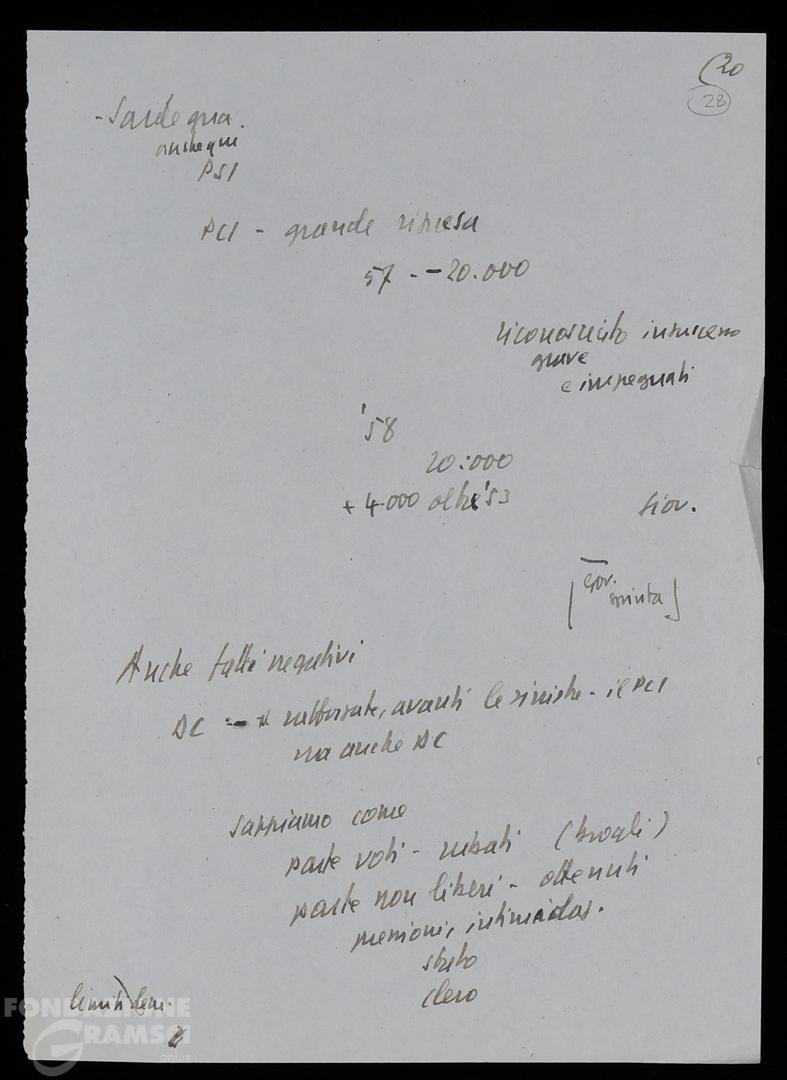 (20
28
- Sardegna.
anche qui
PSI
PCI - grande ripresa
57 - - 20.000
riconosciuto insuccesso
grave
e impegnati
'58
20.000
+ 4.000 oltre '53
Giov.
[Gov.
spinta]
Anche fatti negativi
DC - rafforzate, avanti le sinistre - il PCI
ma anche DC
sappiamo come
parte voti - rubati (brogli)
parte non liberi - ottenuti
pressioni, intimidaz.
stato
clero
limiti dem.
FONDAZIONE
GRAMSCI
onlus